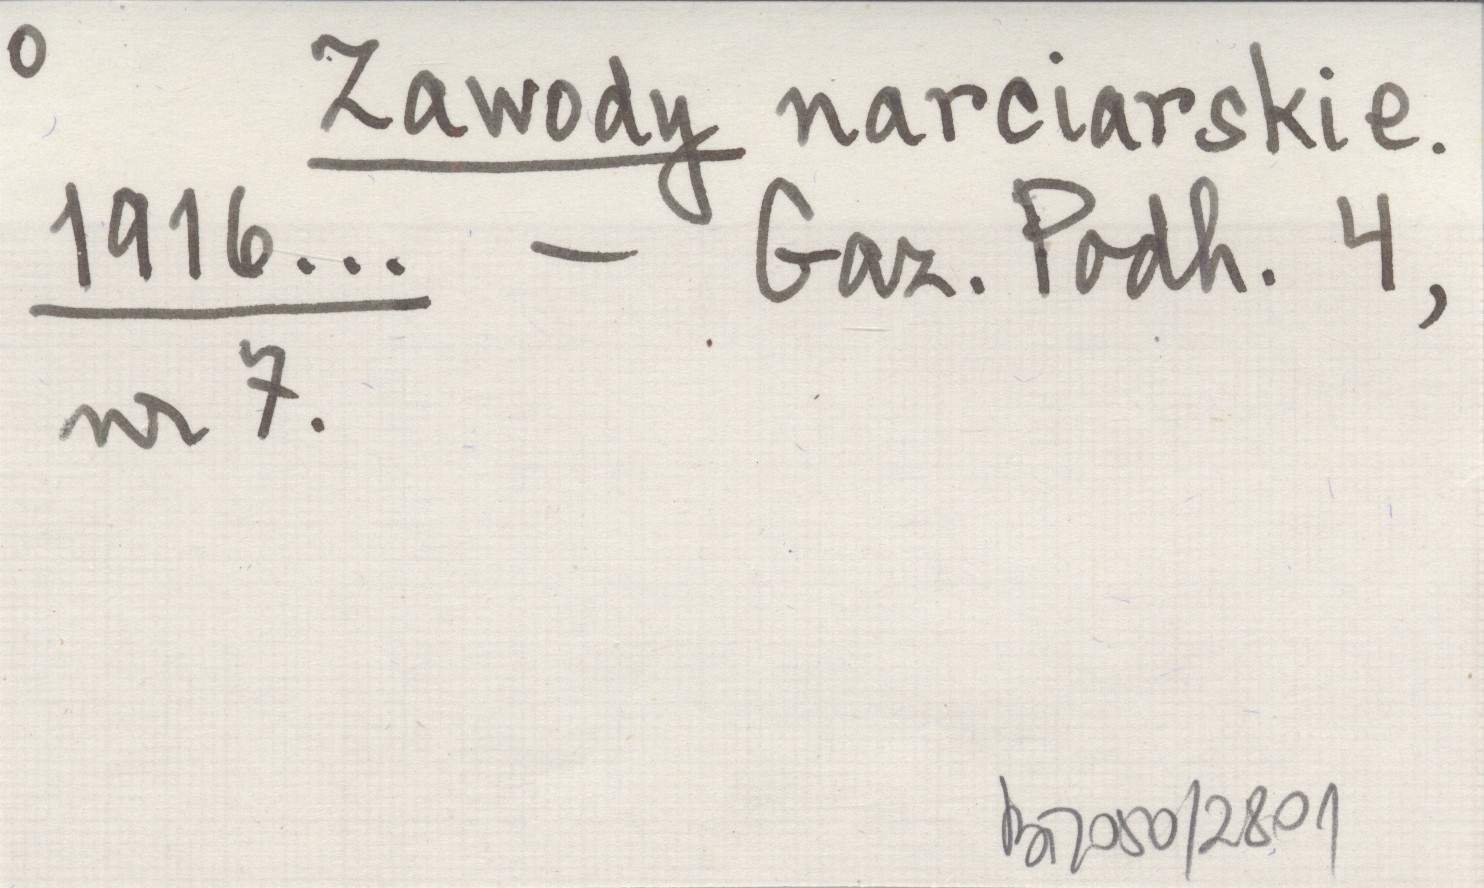 o Zawody narciarskie.
1916... — Gaz. Podh. 4,
nr 7.